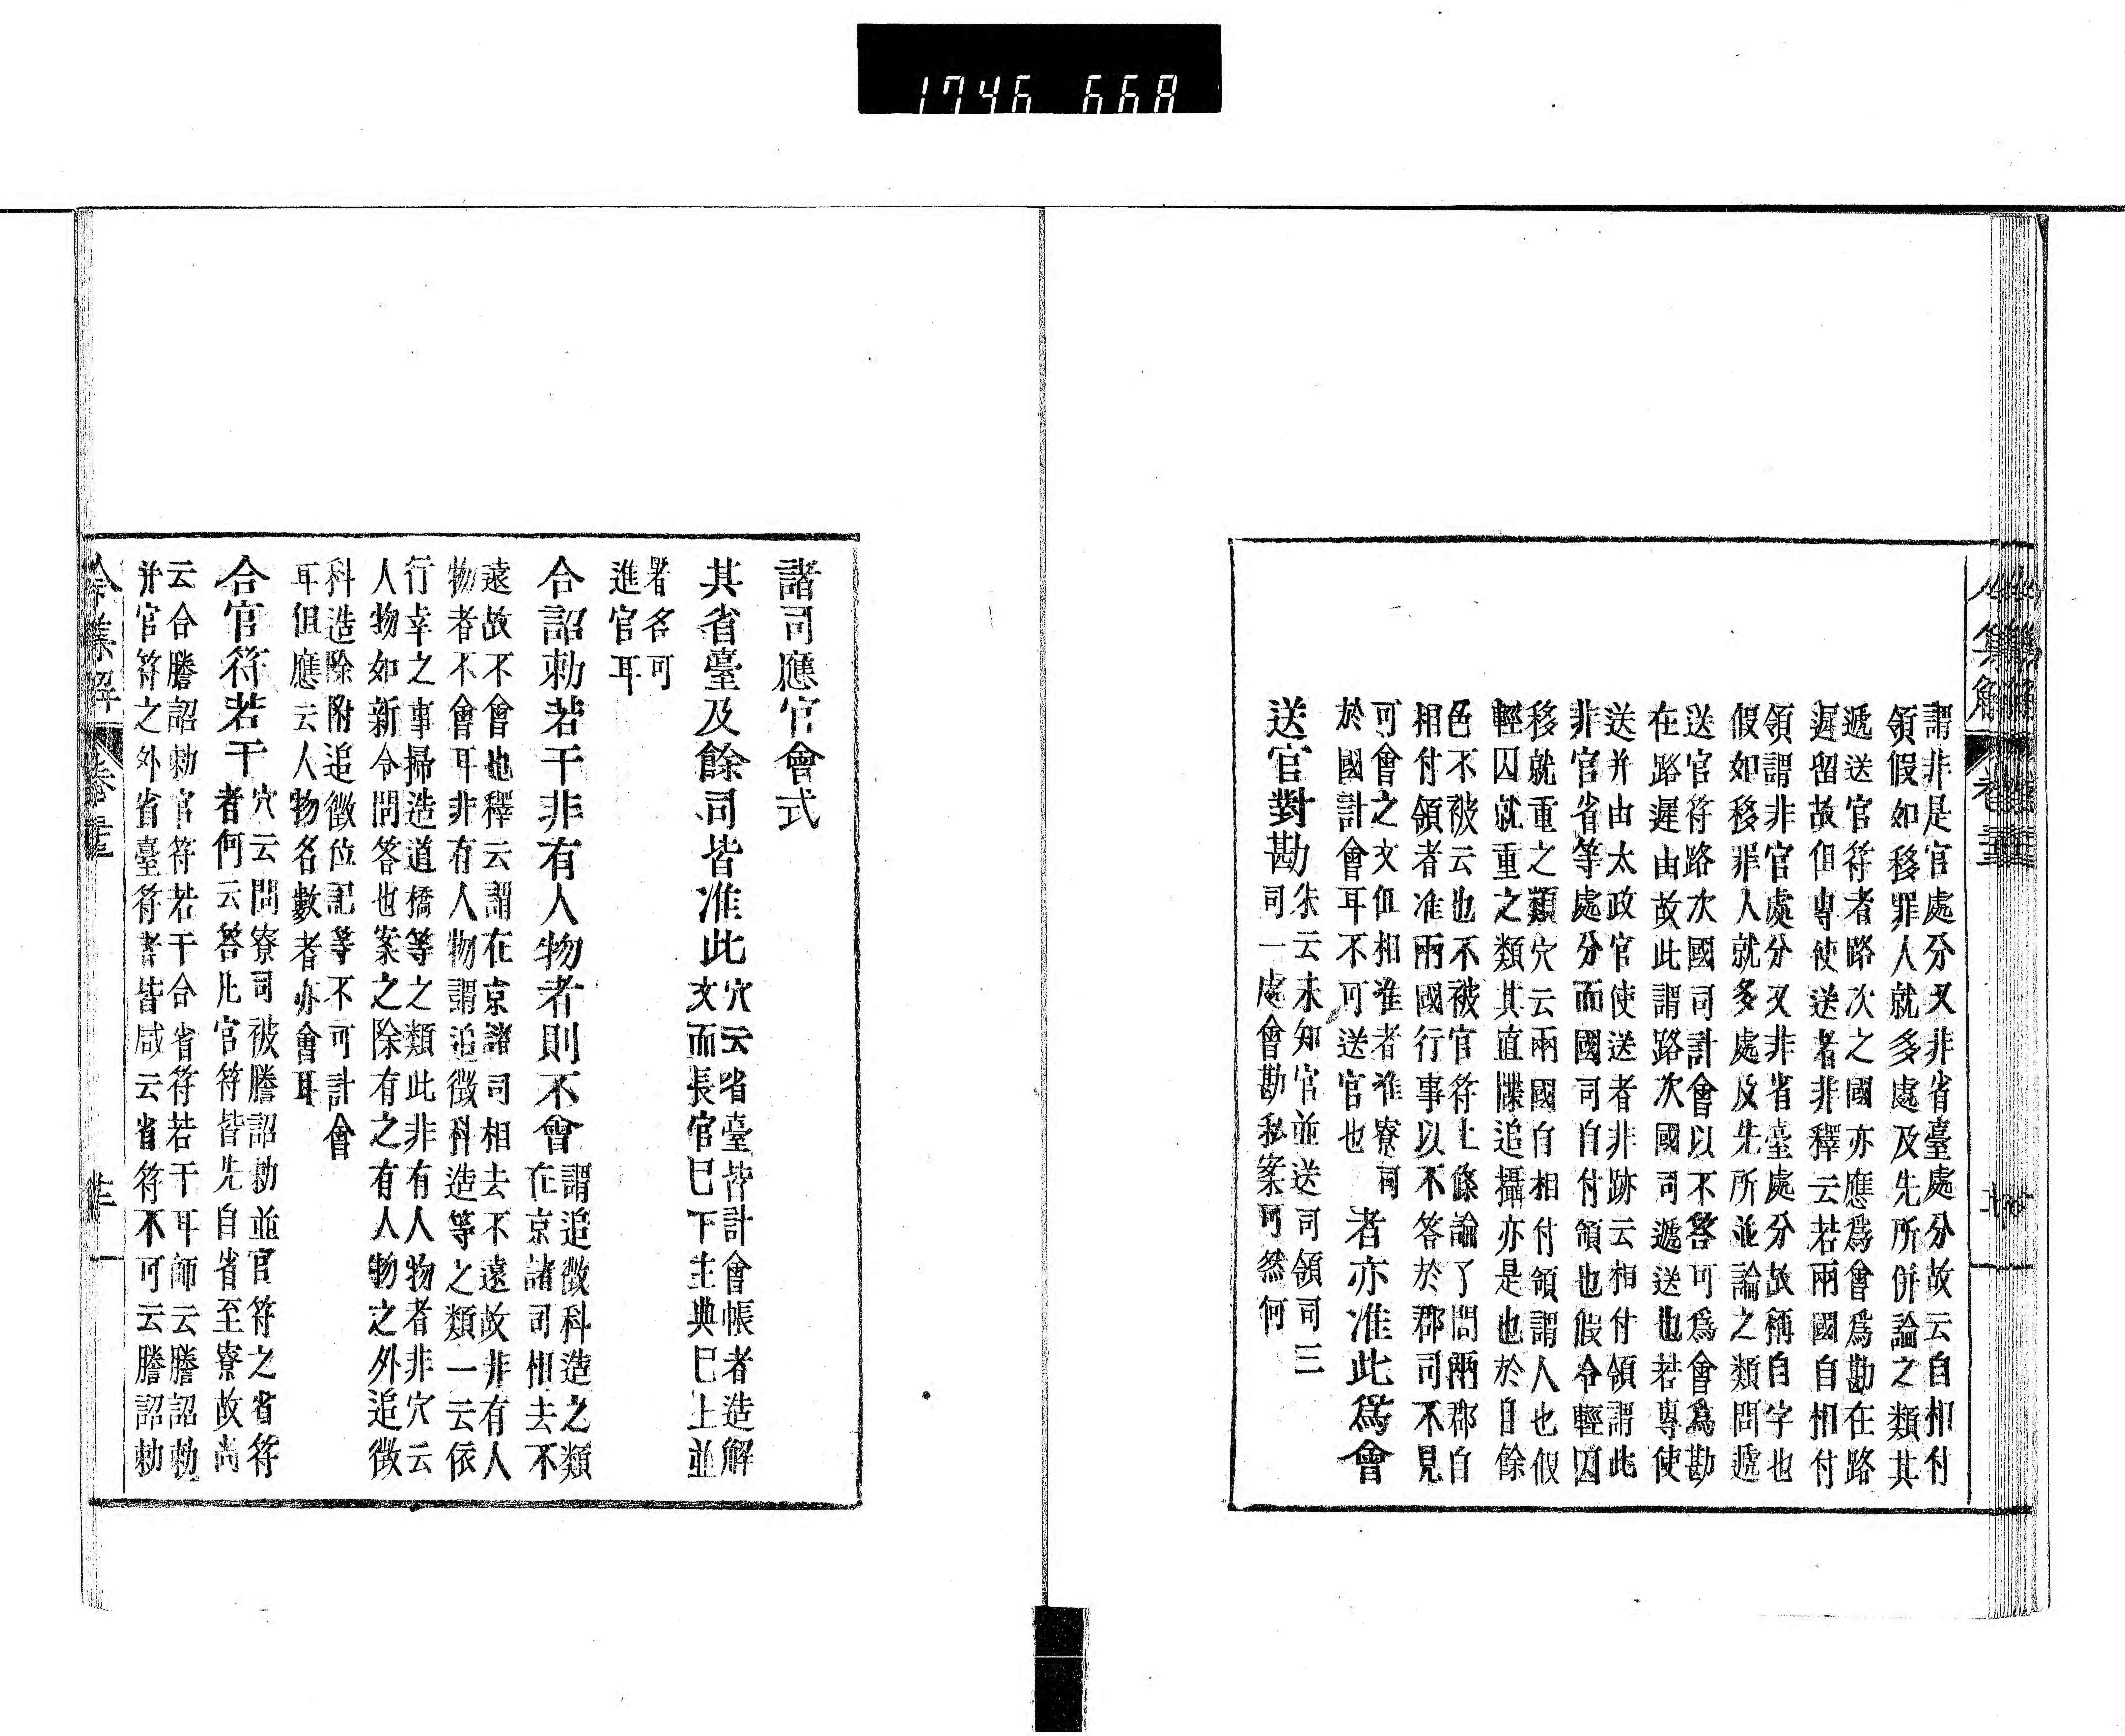 1746 668
謂非是官處分又非省臺處分故云自相付
領假如移罪人就多處及先所併論之類其
遞送官符者路次之國亦應爲會爲勘在路
遲留故但專使送者非釋云若兩國自相付
領謂非官處分又非省臺處分故稱自字也
假如移罪人就多處及先所並論之類問遞
送官符路次國司計會以不答可爲會爲勘
在路遲由故此謂路次國司遞送也若專使
送并由太政官使送者非跡云相付領謂此
非官省等處分而國司自付領也假令輕囚
移就重之類穴云兩國自相付領謂人也假
輕囚就重之類其直牒追攝亦是也於自餘
色不被云也不被官符上條論了問兩郡自
相付領者准兩國行事以不答於郡司不見
可會之文但相准者准寮司
於國計會耳不可送官也
者亦准此爲會
送官對勘
朱云未知官並送司領司三
司一處會勘私案可然何
諸司應官會式
其省臺及餘司皆准此
穴云省臺皆計會帳者造解
文而長官巳下主典巳上並
署名可
進官耳
合詔勅若干非有人物者則不會
謂追徵科造之類
在京諸司相去不
遠故不會也釋云謂在京諸司相去不遠故非有人
物者不會耳非有人物謂追徵科造等之類一云依
行幸之事掃造道橋等之類此非有人物者非穴云
人物如新令問答也案之除有之有人物之外追徵
科造除附追徵位記等不可計會
耳但應云人物名數者亦會耳
合官符若干
穴云問寮司被謄詔勅並官符之省符
者何云答凡官符皆先自省至寮故尚
云合謄詔勅官符若干合省符若干耳師云謄詔勅
并官符之外省臺符者皆咸云省符不可云謄詔勅